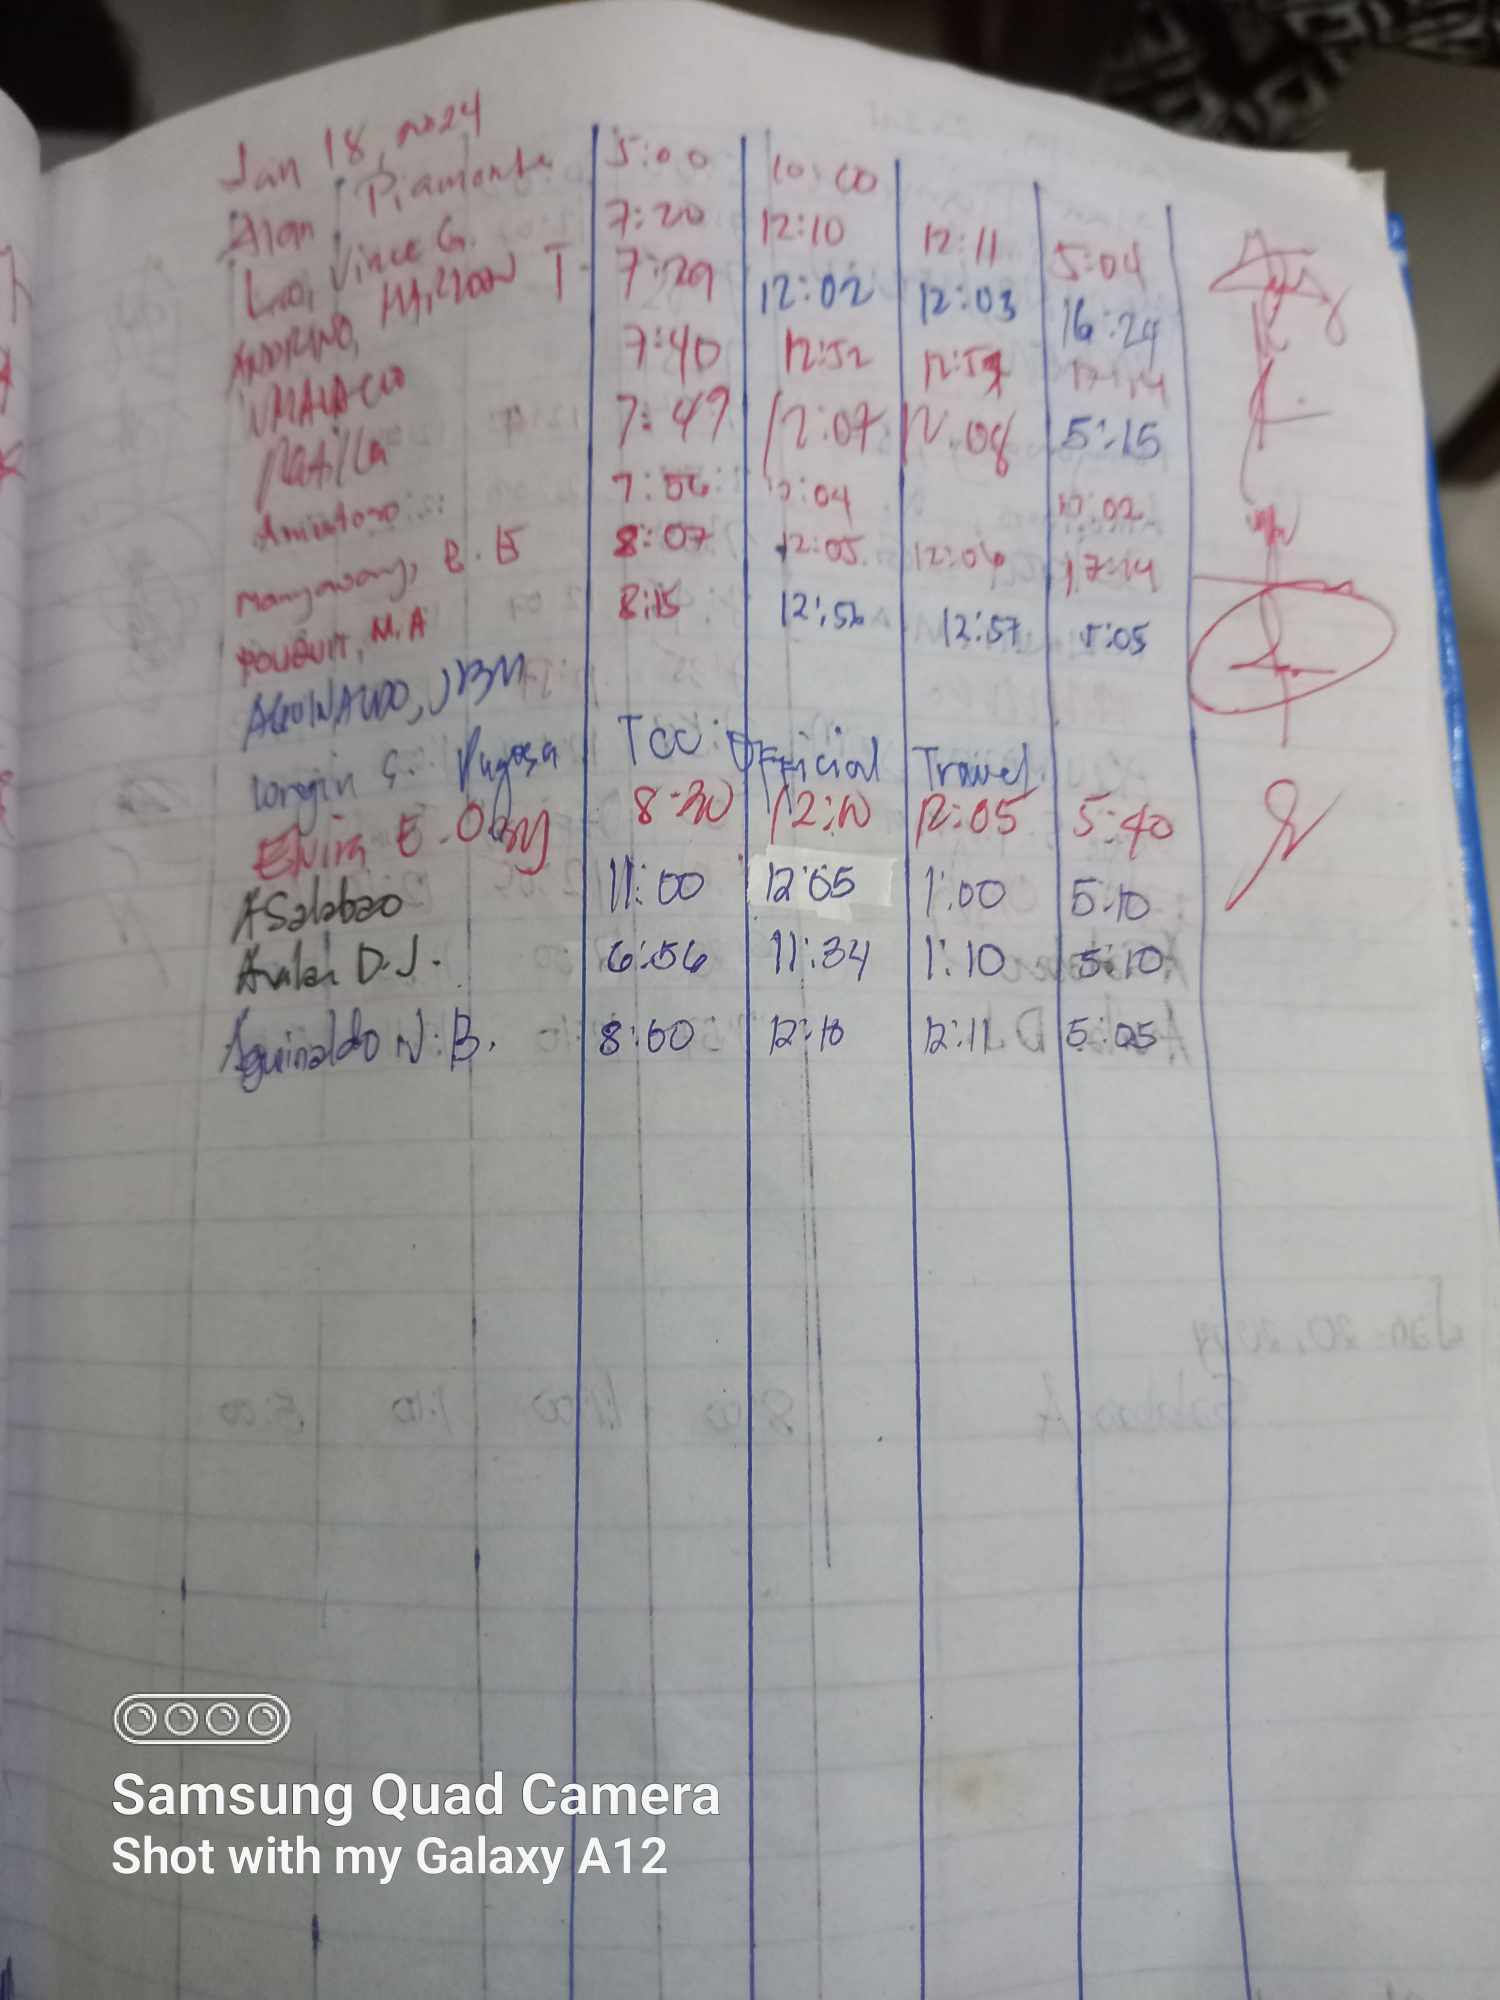 Jan 18, 2024
Alan Piamonte 5:00 10:00
Lao, Vince G. 7:20 12:10 12:11 5:04
T. 7:29 12:02 12:03 16:24
7:40 12:52 12:53 17:14
Padilla 7:49 12:07 12:08 5:15
Amiatoro 7:56 12:04 17:02
Mangawang, B. E 8:07 12:05 12:06 17:14
M.A 8:15 12:56 12:57 5:05
AGUINALDO, JBM
Longin S. Pugosa TCC: Official Travel
Elvira E. Obry 8:30 12:10 12:05 5:40
ASalabao 11:00 12:05 1:00 5:10
D.J. 6:56 11:34 1:10 5:10
Aguinaldo N.B. 8:00 12:10 12:11 5:05
Samsung Quad Camera
Shot with my Galaxy A12